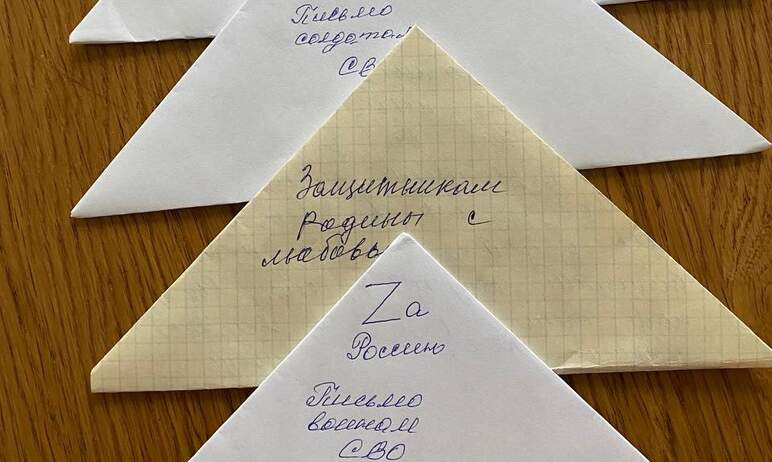 Письмо
солдатам
СВ
Защитникам
Родины с
любовь
Zа
Россию
Письмо
воинам
СВО